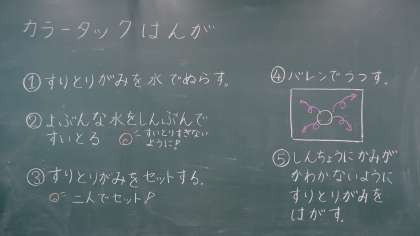 カラータックはんが
①すりとりがみを水でぬらす。
②よぶんな水をしんぶんで
すいとる
すいとりすぎない
ように!
③すりとりがみをセットする。
二人でセット!
④バレンでうつす。
⑤しんちょうにかみが
かわかないように
すりとりがみを
はがす。